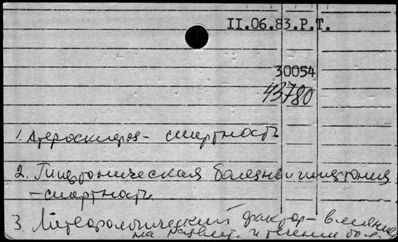 II.06.83.Р.Т.
30054
43780
1. Атеросклероз - смертность
2. Гипертоническая болезнь и гипертония
- смертность
3. Метеорологический фактор - влияние
на развит. и течение бол.